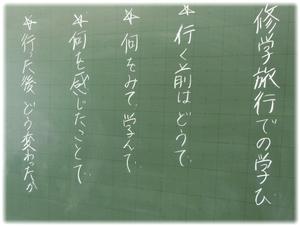 修学旅行での学び
*行く前はどうで
*何をみて学んで
*何を感じたことで
*行った後どう変わったか